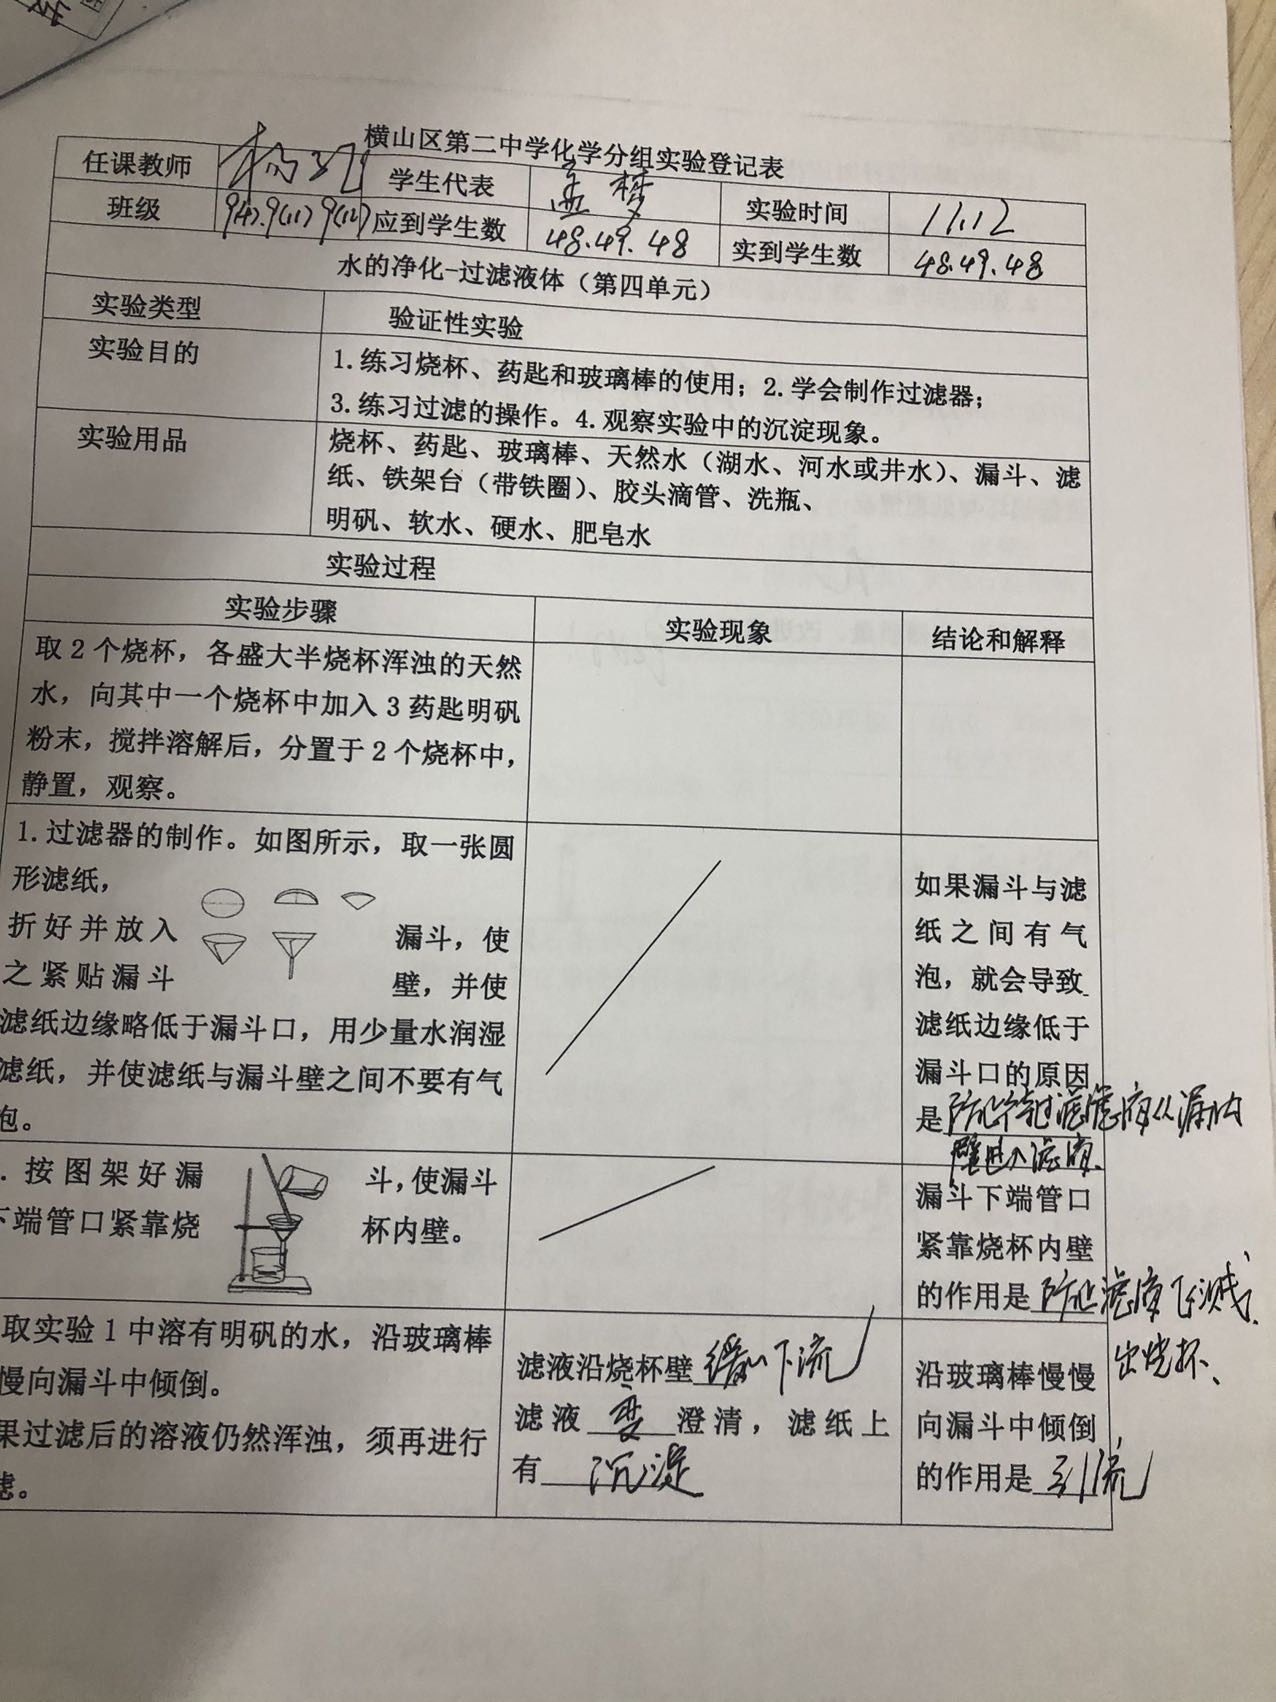 横山区第二中学化学分组实验登记表
任课教师 学生代表 孟梦 实验时间 11.12
班级 9(4).9(11) 9(12) 应到学生数 48.49.48 实到学生数 48.49.48
水的净化-过滤液体（第四单元）
实验类型 验证性实验
实验目的 1.练习烧杯、药匙和玻璃棒的使用；2.学会制作过滤器；
3.练习过滤的操作。4.观察实验中的沉淀现象。
实验用品 烧杯、药匙、玻璃棒、天然水（湖水、河水或井水）、漏斗、滤
纸、铁架台（带铁圈）、胶头滴管、洗瓶、
明矾、软水、硬水、肥皂水
实验过程
实验步骤 实验现象 结论和解释
取2个烧杯，各盛大半烧杯浑浊的天然
水，向其中一个烧杯中加入3药匙明矾
粉末，搅拌溶解后，分置于2个烧杯中，
静置，观察。
1.过滤器的制作。如图所示，取一张圆
形滤纸，
折好并放入 漏斗，使
之紧贴漏斗 壁，并使
滤纸边缘略低于漏斗口，用少量水润湿
滤纸，并使滤纸与漏斗壁之间不要有气
泡。
如果漏斗与滤
纸之间有气
泡，就会导致
滤纸边缘低于
漏斗口的原因
是防止待过滤液从漏斗内
壁进入滤液.
.按图架好漏 斗，使漏斗
下端管口紧靠烧 杯内壁。
漏斗下端管口
紧靠烧杯内壁
的作用是防止滤液飞溅
出烧杯、
取实验1中溶有明矾的水，沿玻璃棒
慢向漏斗中倾倒。
果过滤后的溶液仍然浑浊，须再进行
滤。
滤液沿烧杯壁缓缓下流
滤液变澄清，滤纸上
有沉淀
沿玻璃棒慢慢
向漏斗中倾倒
的作用是引流